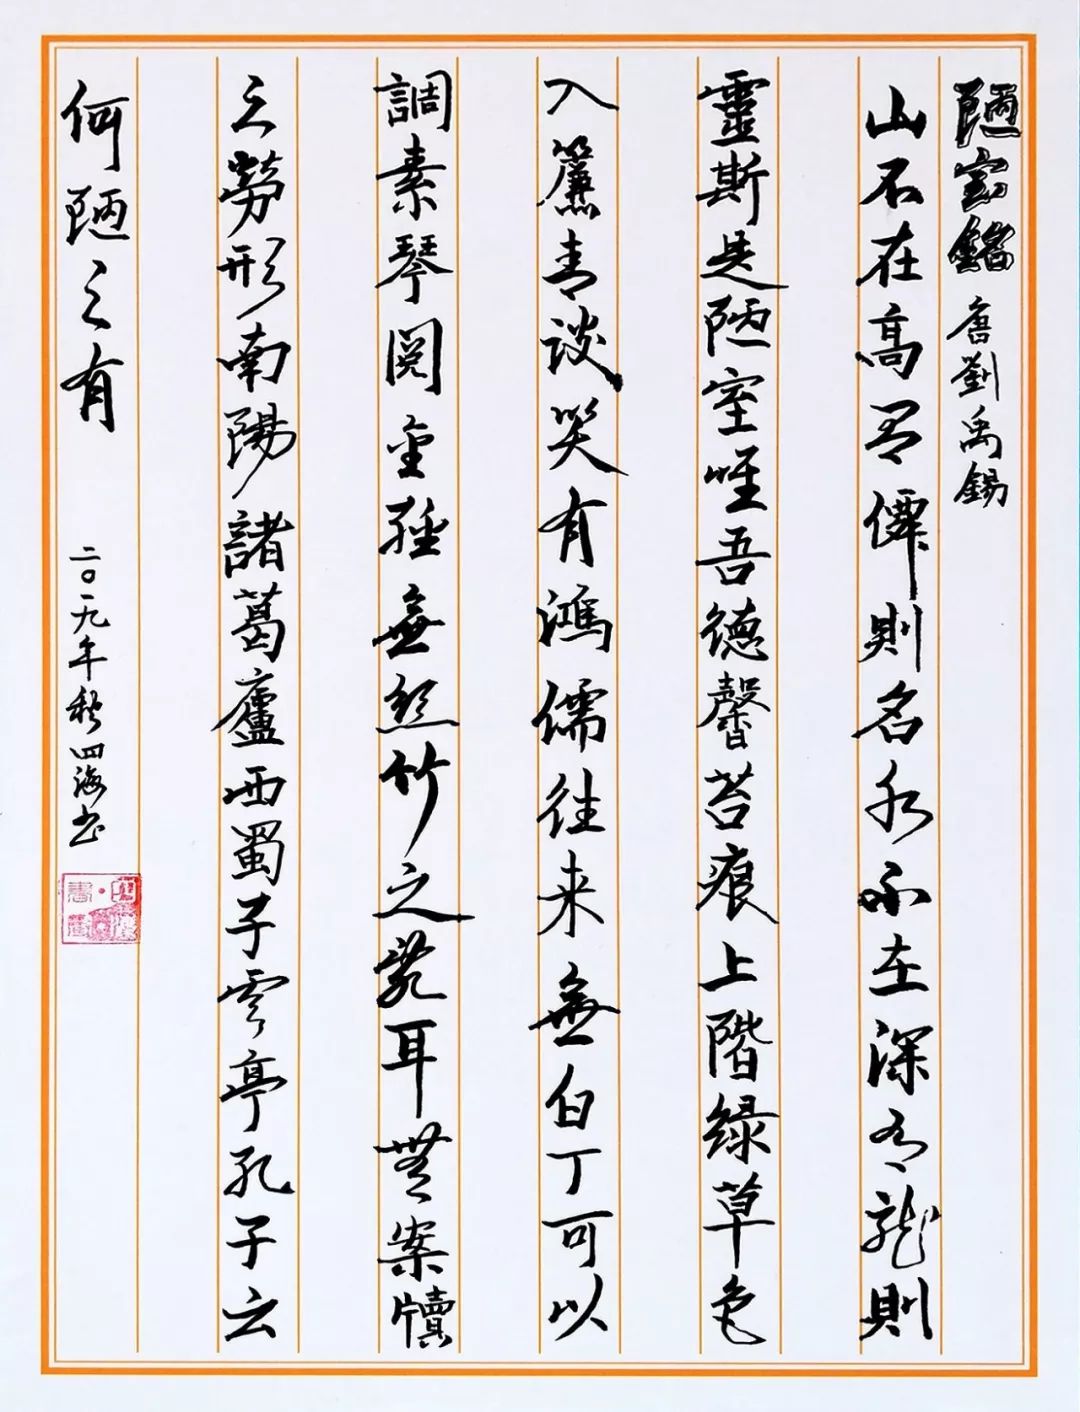 陋室銘 唐劉禹錫
山不在高有僊則名水不在深有龍則
靈斯是陋室唯吾德馨苔痕上階绿草色
入簾青談笑有鴻儒往来無白丁可以
調素琴閱金經無絲竹之亂耳無案牘
之勞形南陽諸葛廬西蜀子雲亭孔子云
何陋之有 二〇一九年秋四海书